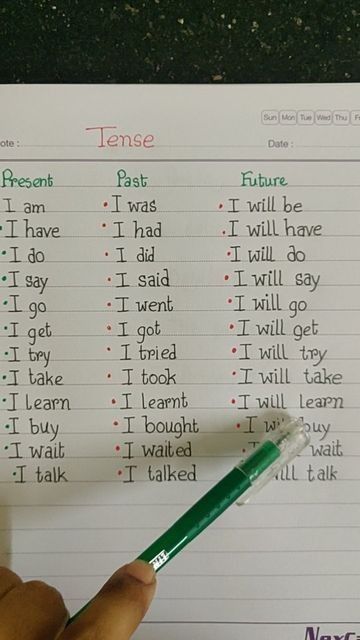 Sun Mon Tue Wed Thu
ote : Tense Date :
Present Past Future
I am • I was • I will be
• I have • I had • I will have
• I do • I did • I will do
• I say • I said • I will say
• I go • I went • I will go
• I get • I got • I will get
• I try • I tried • I will try
• I take • I took • I will take
• I learn • I learnt • I will learn
• I buy • I bought • I will buy
• I wait • I waited wait
• I talk • I talked will talk